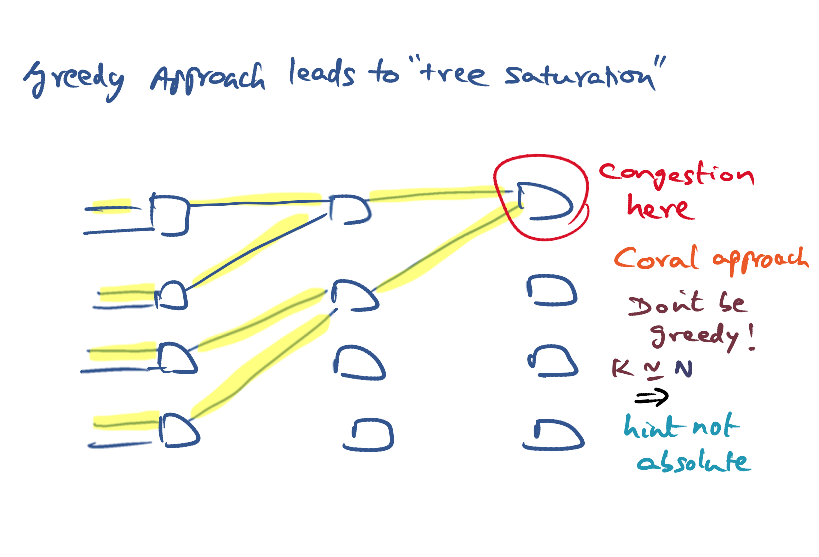 Greedy Approach leads to "tree saturation"
Congestion
here
Coral approach
Don't be
greedy!
K ~ N
⇒
hint not
absolute